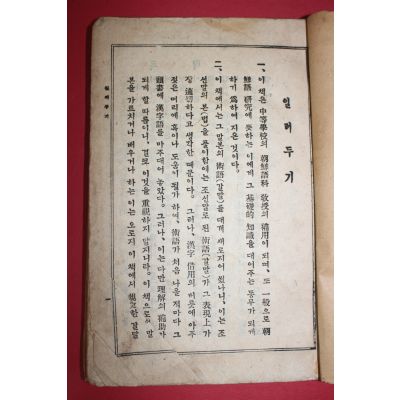 일러두기
一、이 책은 中等學校의 朝鮮語科 敎授의 補用이 되며, 또 一般으로 朝
鮮語 硏究에 뜻하는 이에게 그 基礎的 知識을 대어주는 동무가 되게
하기 爲하여 지은 것이다.
二、이 책에서는 그 말본의 術語(갈말)를 대개 새로지어 썼나니, 이는 조
선말의 본(법)을 풀이함에는 조선말로 된 術語(갈말)가 그 表現上 가
장 適切하다고 생각한 때문이다. 그러나, 漢字 借用의 버릇에 아주
젖은 머리에 혹이나 도움이 될가 하여, 術語가 처음 나올 적마다 그
頭書에 漢字語를 마주대어 놓았다. 그러나, 이는 다만 理解의 補助가
되게 할 따름이니, 결코 이것을 重視하지 말지니라. 이 책으로써 말
본을 가르치거나 배우거나 하는 이는 오로지 이 책에서 規定한 갈말